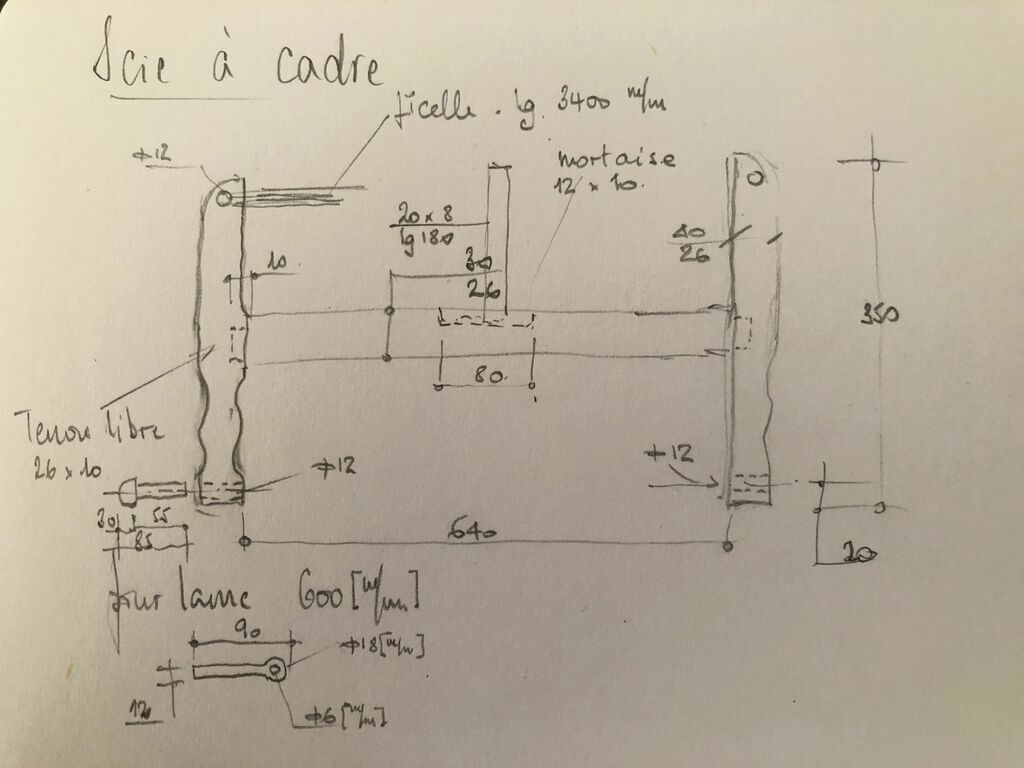 Scie à cadre
ficelle . lg. 3400 m/m
ϕ12
mortaise
12 x 10.
20 x 8
lg 180
40
26
10
30
26
350
80.
Tenon libre
26 x 10
ϕ12
ϕ12
30
55
85
640
20
pour lame 600 [m/m]
90
ϕ18 [m/m]
12
ϕ6 [m/m]